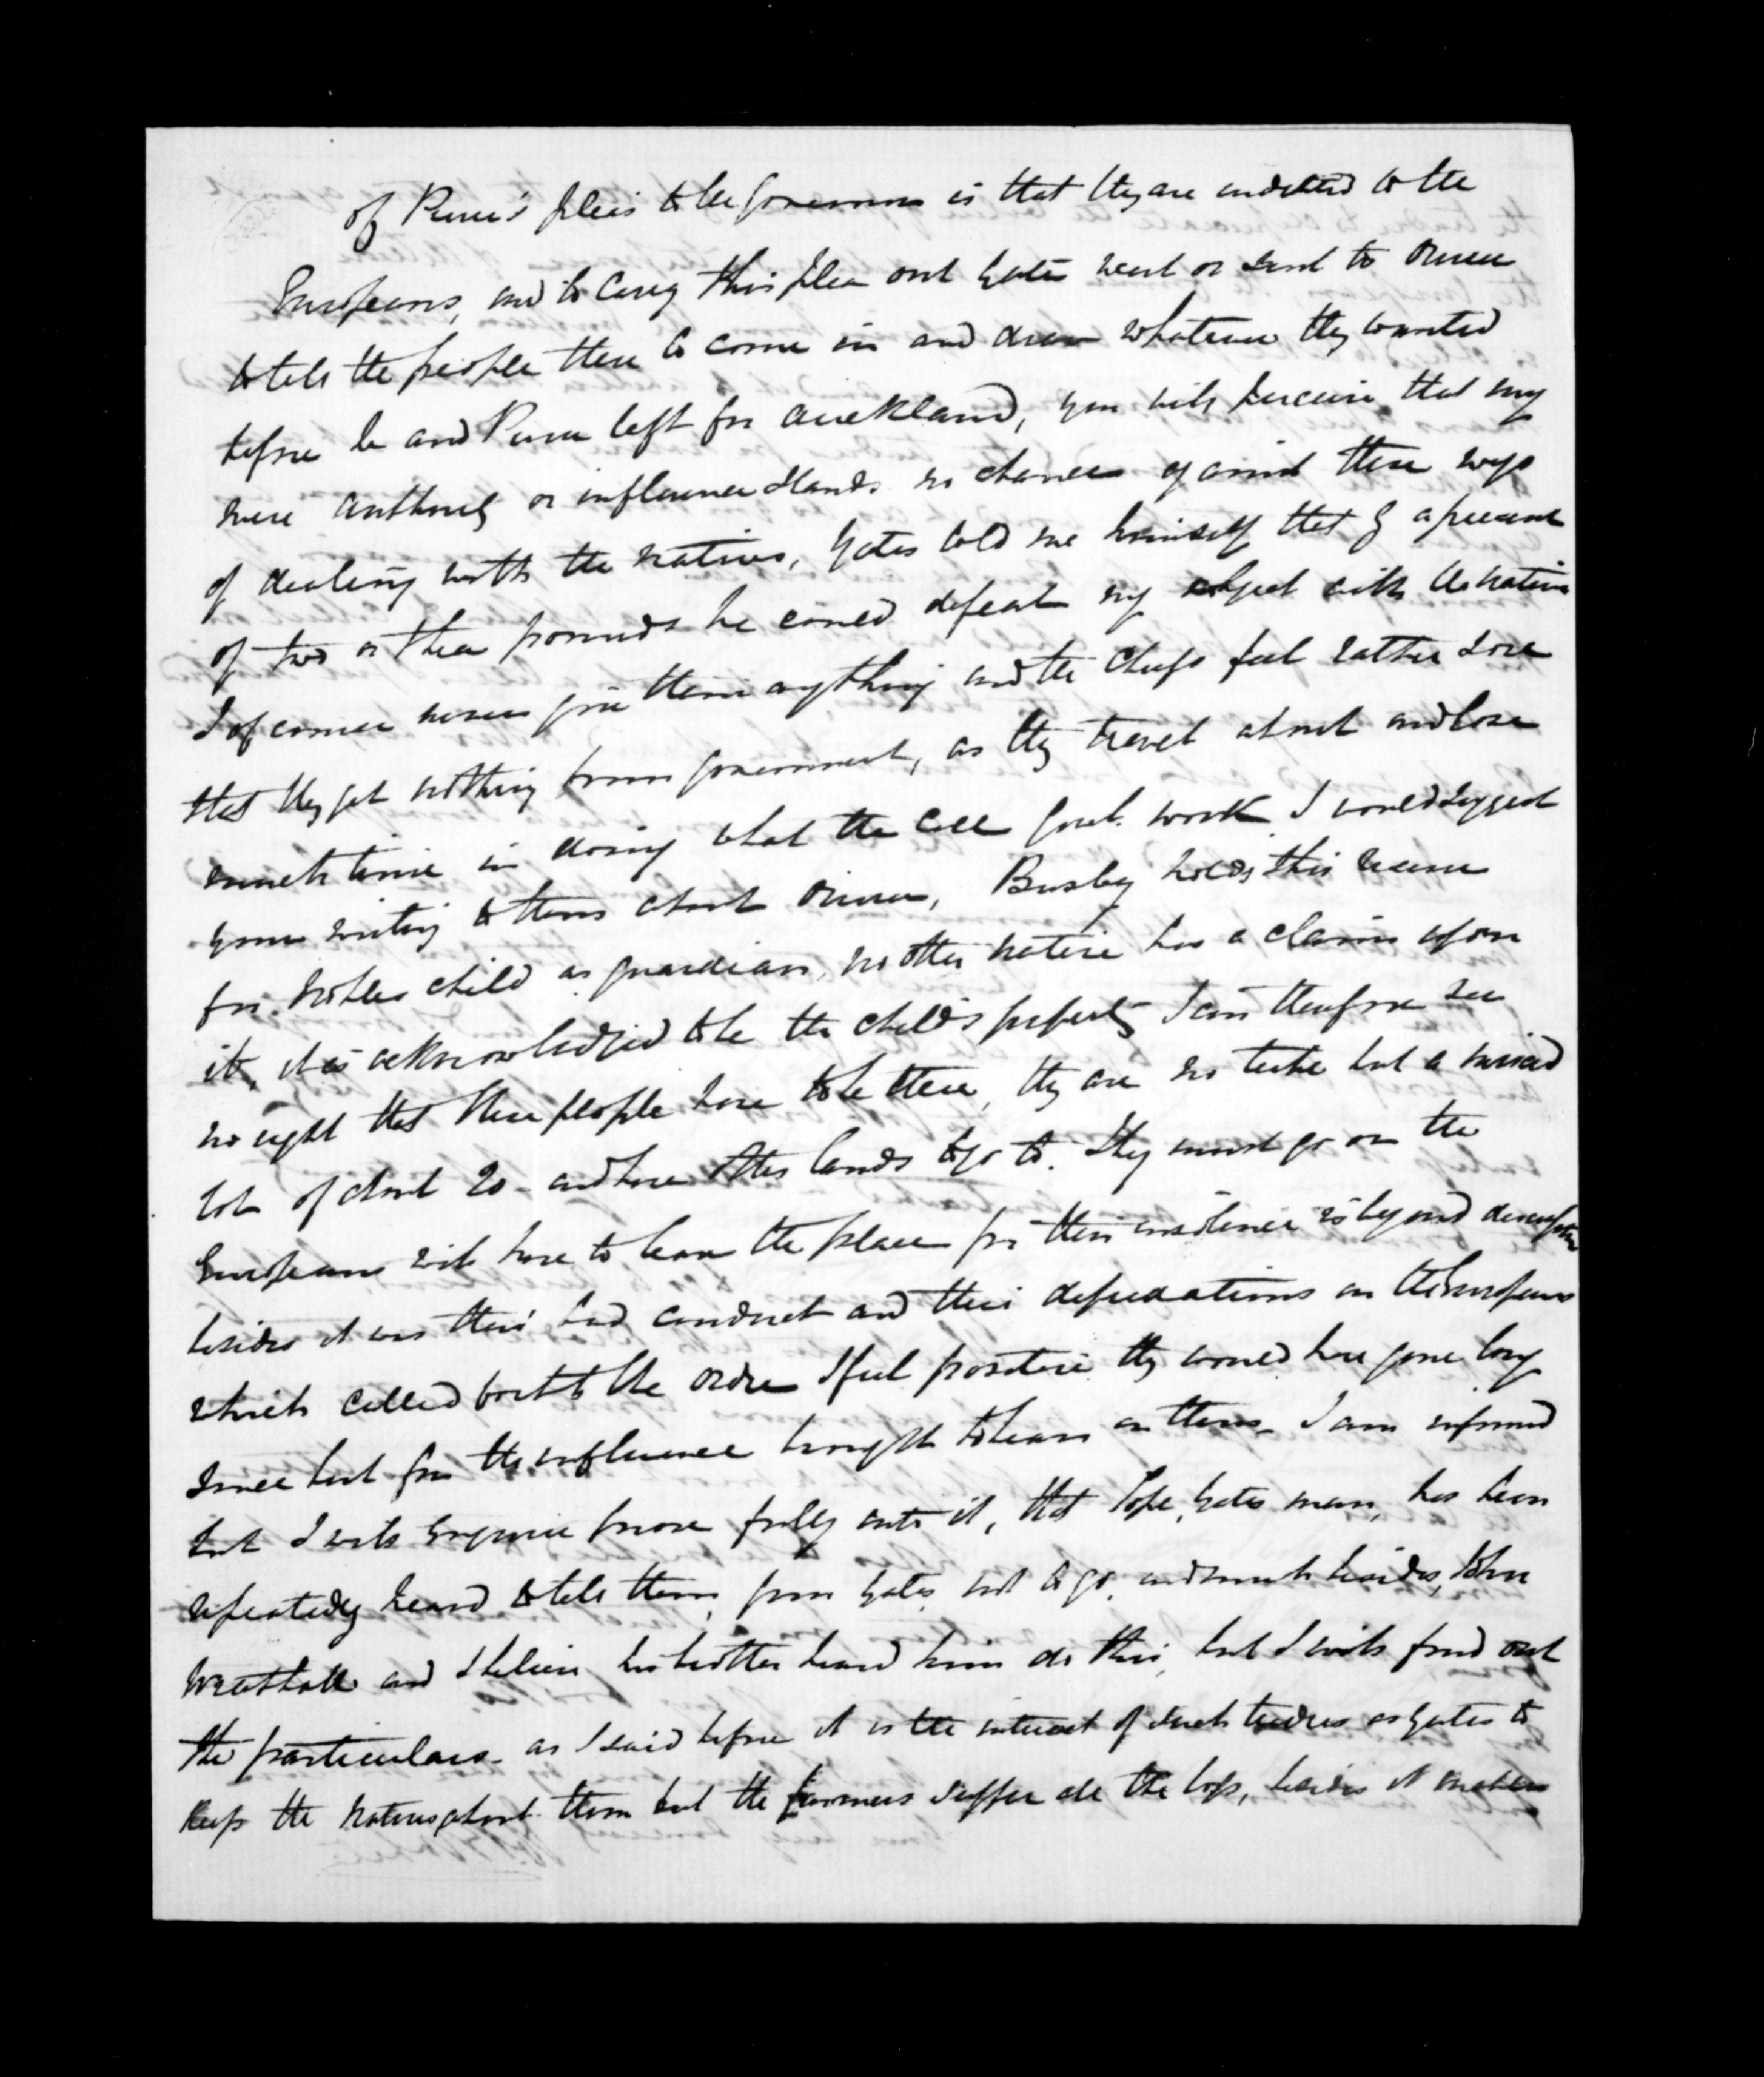 of Puru's pleas to the Governor is that they are indebted to the
Europeans, and to carry this plea out Yates went or sent to
to tell the people there to come in and draw whatever they wanted
before he and Puru left for Auckland, you will perceive that my
mere authority or influence stands no chance against these ways
of dealing with the natives, Yates told me himself that by a present
of two or three pounds he could defeat my object with the natives
I of course never give them anything and the Chiefs feel rather sore
that they get nothing from government, as they travel about and lose
much time in doing what the call Govt. work I would suggest
your writing to them about Busby holds this
for child as guardian, no other native has a claim upon
it, it is acknowledged to be the child's property I can therefore see
no right that these people have to be there, they are no but a mixed
lot of about 20 - and have other lands to go to. they must go or the
Europeans will have to leave the place for their insolence is beyond description
besides it was their bad conduct and their depredations on the Europeans
which called forth the order I feel positive they would have gone long
since but for the influence brought to bear on them - I am informed
but I will enquire more fully into it, that Pope, Yates man, has been
repeatedly heard to tell them from Yates not to go, and much besides, John
and I believe his brother heard him do this, but I will find out
the particulars - as I said before it is the interest of such traders as Yates to
keep the natives about them but the farmers suffer all the loss, besides it makes